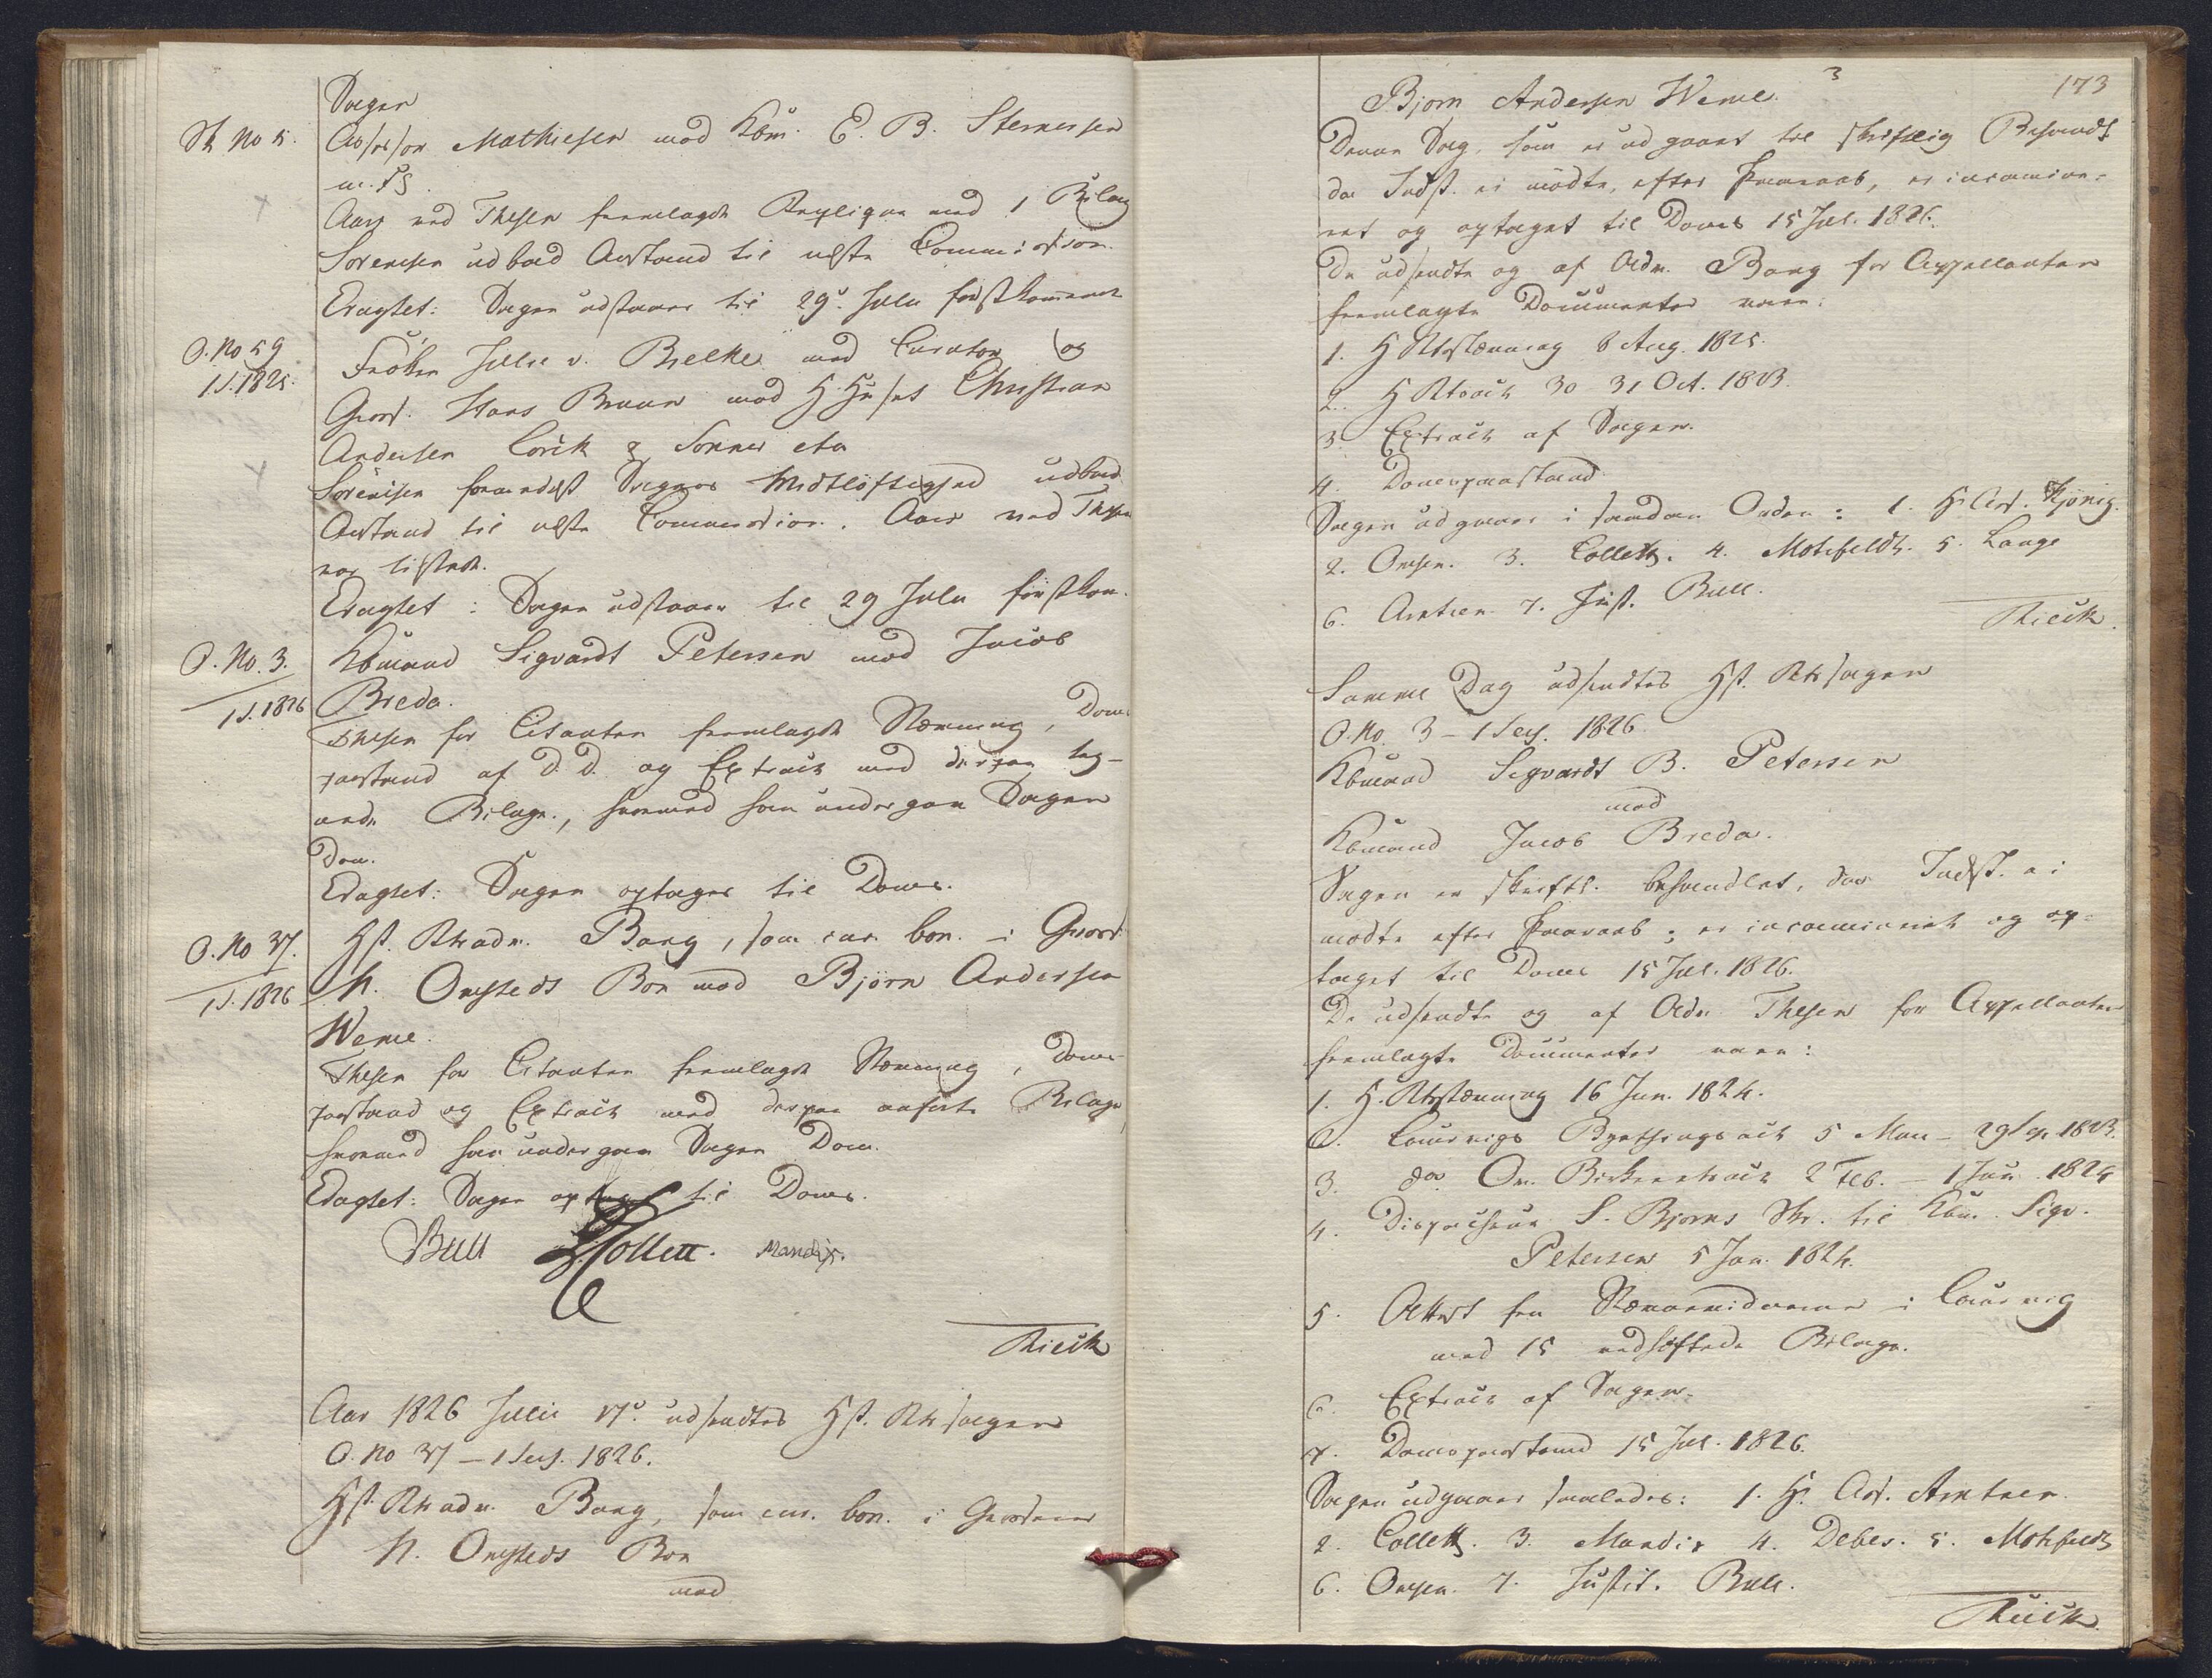 Sagen
Sk No 5.
Assessor Mathiesen mod Kbm. E. B. Sternersen
m. fl.
Aars ved Thesen fremlagde Repliqve med 1 Bilag
Sørensen udbad Anstand til næste Commission.
Eragtet: Sagen udstaaer til 29de Julii førstkommende
O. No 59
1 S. 1825.
Frøken Julie v. Bielke med Curator og
Grosr. Hans Bruun mod H Huset Christian
Andersen Lorck & Sønner etc
Sørensen formedelst Sagens Vidtløftighed udbad
Anstand til næste Commission. Aars ved Thesen
var tilstede.
Eragtet: Sagen udstaaer til 29 Julii førstkom.
O. No. 3.
1 S. 1826
Kbmand Sigvardt Petersen mod Jacob
Breda.
Thesen for Citanten fremlagde Stævning, Doms
paastand af D. D. og Extract med derpaa tag-
ende Bilage, hvormed han undergav Sagen
Dom.
Eragtet: Sagen optages til Doms.
O. No 37.
1 S. 1826
Hst. Rtsadv. Bang, som cur. bon. i Grosr.
N. Omsteds Boe mod Bjørn Andersen
Werne.
Thesen for Citanten fremlagde Stævning, Doms-
paastand og Extract med derpaa anførte Bilage
hvormed han undergav Sagen Dom.
Eragtet: Sagen optages til Doms.
Bull J. Collett. Mandix.
Rieck
Aar 1826 Julii 17de udsendtes Hst. Rtssagen
O. No 37 – 1 Sess. 1826.
Hst. Rtsadv. Bang, som cur. bon. i Grosserer
N. Omsteds Boe
mod
3
173
Bjørn Andersen Werne.
Denne Sag, som er udgaaet til skriftlig Behandl.
da Indst. ei mødte, efter Paaraab, er incamine-
ret og optaget til Doms 15 Jul. 1826.
De udsendte og af Adv. Bang for Appellanten
fremlagte Documenter vare:
1. H Rtsstævning 6 Aug. 1825.
2. H Rtsact 30 31 Oct. 1823.
3. Extract af Sagen.
4. Domspaastand
Sagen udgaaer i saadan Orden: 1. Hr. Ass.
2. Omsen. 3. Collett. 4. Motzfeldt. 5. Lange
6. Arntzen 7. Just. Bull.
Rieck.
Samme Dag udsendtes Hst. Rtssagen
O. No. 3 – 1 Sess. 1826.
Kbmand Sigvardt B. Petersen
mod
Kbmand Jacob Breda.
Sagen er skriftl. behandlet, da Indst. ei
mødte efter Paaraab; er incamineret og op-
taget til Doms 15 Jul. 1826.
De udsendte og af Adv. Thesen for Appellanten
fremlagte Documenter vare:
1. H. Rtsstævning 16 Jun. 1824.
2. Laurvigs Byethingsact 5 Mai – 29 Sep. 1823.
3. do Ov. Birkeretsact 2 Feb. – 1 Jun. 1824
4. Dispacheur S. Bjørns Skr. til Kbm. Sigv.
Petersen 5 Jan. 1824.
5. Attest fra Stævnevidnerne i Laurvig
med 15 vedhæftede Bilage.
6. Extract af Sagen.
7. Domspaastand 15 Jul. 1826.
Sagen udgaaer saaledes: 1. Hr. Ass. Arntzen.
2. Collett. 3. Mandix 4. Debes. 5. Motzfeldt
6. Omsen. 7. Justit. Bull.
Rieck.